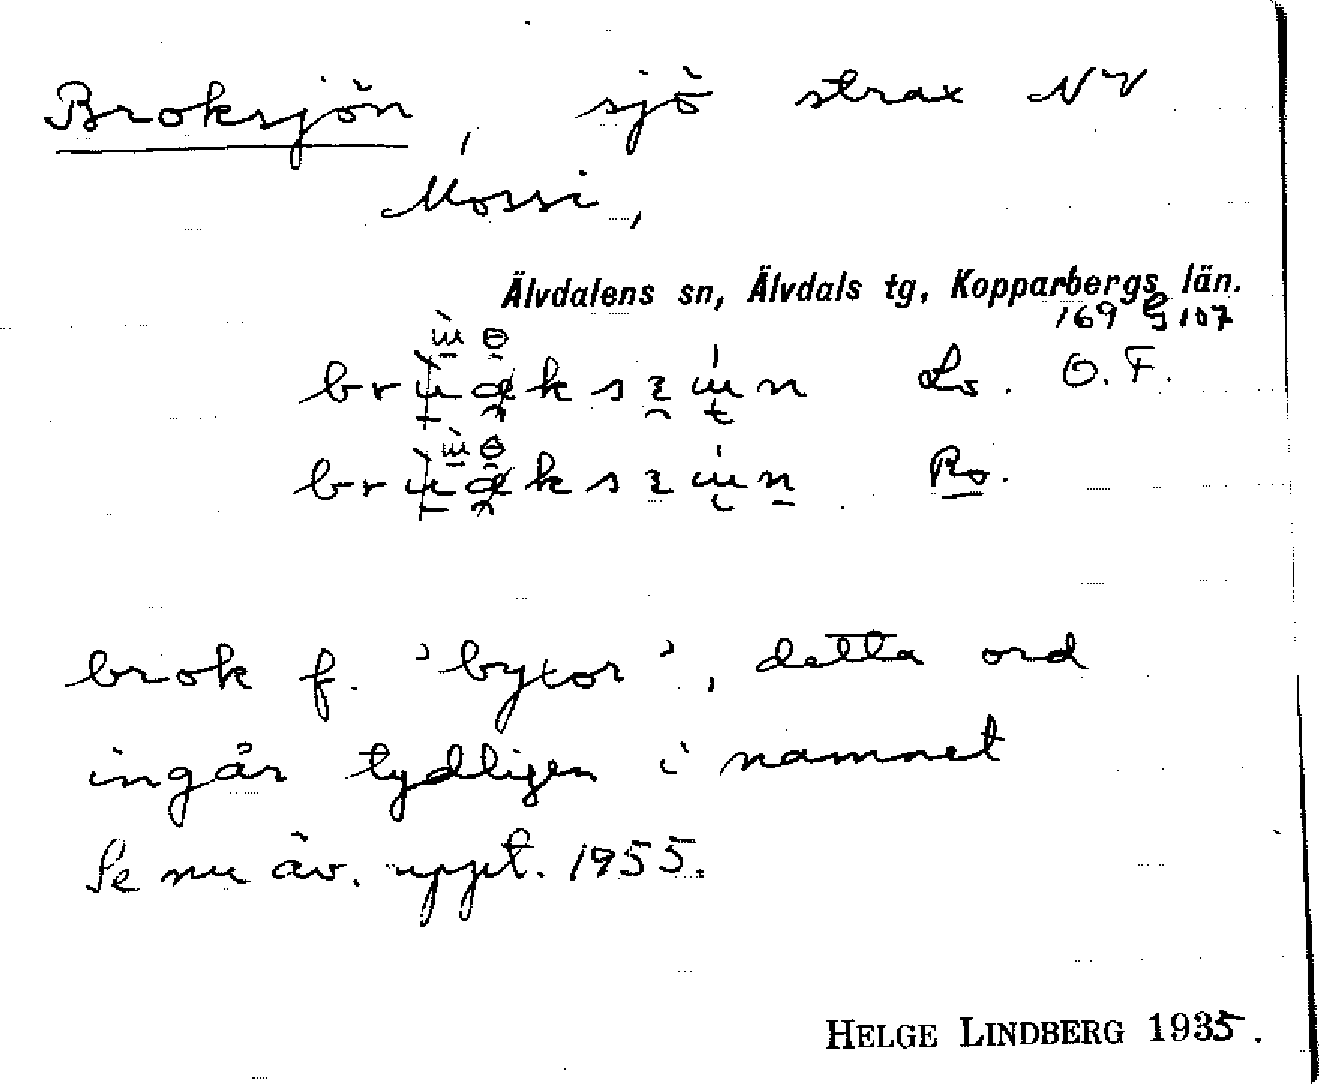 Broksjön, sjö strax NV
Mossi,
Älvdalens sn, Älvdals tg, Kopparbergs län.
169 g 107
O. F.
brok f. 'byxor', detta ord
ingår tydligen i namnet
Se nu äv. uppt. 1955.
HELGE LINDBERG 1935.